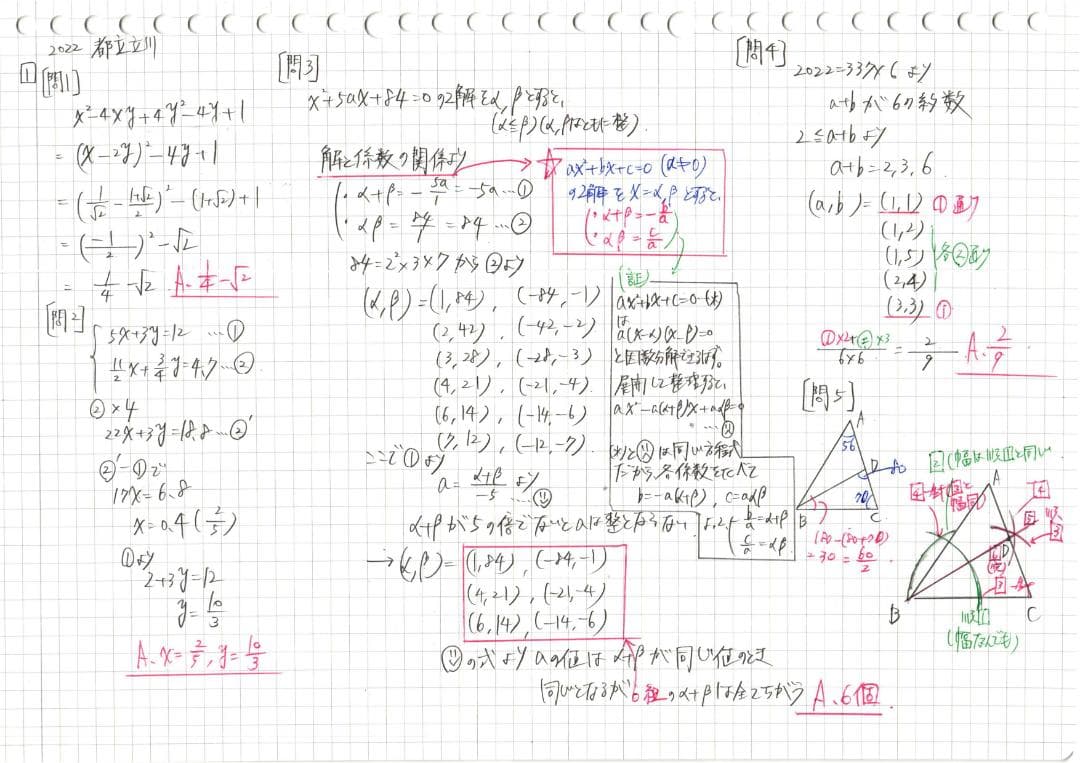 2022 都立立川
1
[問1]
x²-4xy+4y²-4y+1
= (x-2y)²-4y+1
= (1/√2 - (1+√2)/2)² - (1+√2)+1
= (-1/2)² - √2
= 1/4 - √2 A. 1/4-√2
[問2]
5x+3y=12 …①
11/2 x+3/4 y=4.7 …②
②×4
22x+3y=18.8 …②'
②'-①で
17x=6.8
x=0.4 (2/5)
①より
2+3y=12
y=10/3
A. x=2/5, y=10/3
[問3]
x²+5ax+84=0の2解をα,βとすると、
(α≦β)(α,βはともに整)
解と係数の関係より
・α+β=-5a/1=-5a…①
・αβ=84/1=84 …②
☆ ax²+bx+c=0 (a≠0)
の2解をx=α,βとすると、
・α+β=-b/a
・αβ=c/a
84=2²×3×7から②より
(α,β)=(1,84), (-84,-1)
(2,42), (-42,-2)
(3,28), (-28,-3)
(4,21), (-21,-4)
(6,14), (-14,-6)
(7,12), (-12,-7)
(証)
ax²+bx+c=0…(*)
は
a(x-α)(x-β)=0
と因数分解できるはず。
展開して整理すると、
ax²-a(α+β)x+aαβ=0
(*)と は同じ方程式
だから、各係数をくらべて
b=-a(α+β), c=aαβ
よって -b/a=α+β
c/a=αβ
ここで①より
a=(α+β)/-5 より
α+βが5の倍でないとaは整とならない
→(α,β)=(1,84), (-84,-1)
(4,21), (-21,-4)
(6,14), (-14,-6)
の式よりaの値はα+βが同じ値のとき
同じとなるが6組のα+βは全てちがう A. 6個
[問4]
2022=337×6より
a+bが6の約数
2≦a+bより
a+b=2,3,6
(a,b)=(1,1) ①通り
(1,2)
(1,5) 各②通り
(2,4)
(3,3) ①
(①×2+②×3)/(6×6) = 2/9 A. 2/9
[問5]
A
56
D
80
70
B
C
180-(80+70)
=30=60/2
2 (幅は順1と同じ
4
A
4
5
3
D
B
C
順1
(幅なんでも)